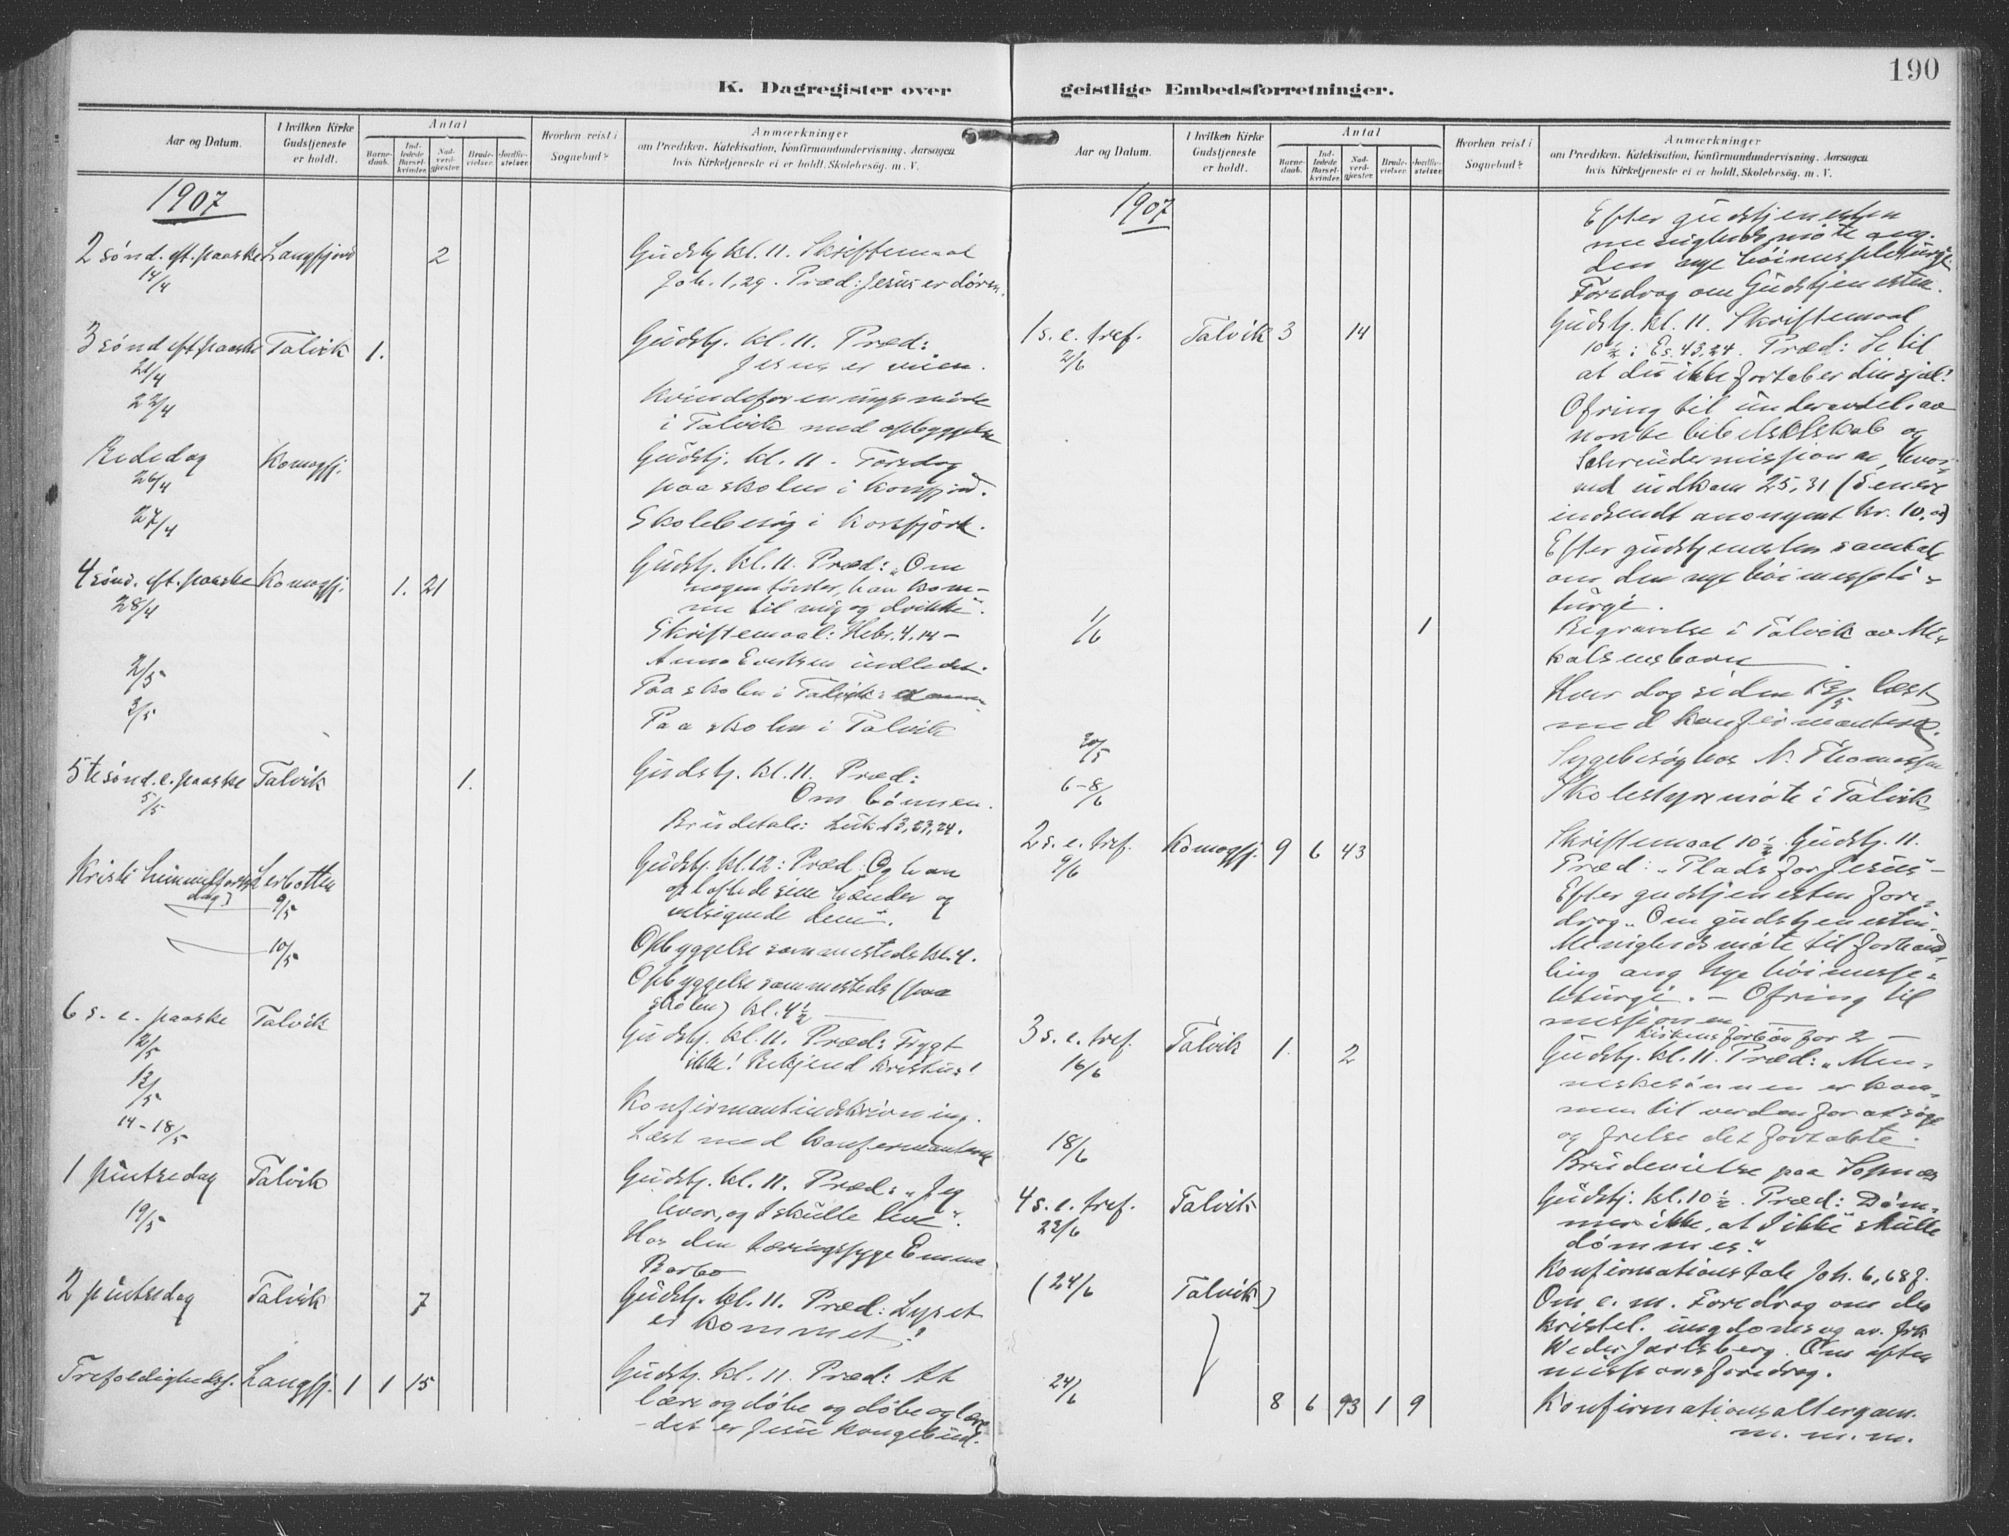 190
K. Dagregister over
geistlige Embedsforretninger.
Aar og Datum.
I hvilken Kirke
Gudstjeneste
er holdt.
Antal
Barne-
daab.
Ind-
ledede
Barsel-
kvinder.
Nad-
verd-
gjester.
Brude-
vielser.
Jordfæ-
stelser.
Hvorhen reist i
Sognebud?
Anmærkninger
om Prædiken, Katekisation, Konfirmandundervisning, Aarsagen
hvis Kirketjeneste ei er holdt, Skolebesøg, m. V.
1907
2 sønd. eft. paaske Langfjord 2 Gudstj kl. 11. Skriftemaal
14/4 Joh. 1,29. Præd: Jesus er døren.
3 sønd eft paaske Talvik 1. Gudstj. kl. 11. Præd:
21/4 Jesus er veien.
22/4 Kvindeforeningsmøte
i Talvik med opbyggelse
Bededag Komagfj. Gudstj. kl. 11. Foredrag
26/4 paa skolen i Korsfjord.
27/4 Skolebesøg i Korsfjord.
4 sønd. eft. paaske Komagfj. 1. 21 Gudstj. kl. 11. Præd: "Om
28/4 nogen tørster, han kom-
me til mig og drikke".
Skriftemaal: Hebr. 4.14-
Anna Evertsen indledet.
2/5 Paa skolen i Talvik:
3/5 Paa skolen i Talvik
5te sønd. e. paaske Talvik 1. Gudstj. kl. 11. Præd:
5/5 Om bønnen.
Brudetale: Luk 13,23,24.
Kristi himmelfarts Lerbotten Gudstj. kl. 12: Præd: Og han
dag 9/5 opløftede sine hænder og
velsignede dem".
10/5 Opbyggelse sammesteds kl. 4.
Opbyggelse sammesteds (paa
skolen) kl. 4 1/2
6 s. e. paaske Talvik Gudstj. kl. 11. Præd: Frygt
12/5 ikke! Bekjend Kristus!
13/5 Konfirmantindskrivning.
14-18/5 Læst med konfirmanterne
1 pintsedag Talvik Gudstj. kl. 11. Præd: "Jeg
19/5 lever, og I skulle leve".
Hos den tæringssyge Emma
Barbo
2 pintsedag Talvik 7 Gudstj. kl. 11. Præd: Lyset
er kommet!
Trefoldighedsf. Langfj. 1 1 15 Gudstj. kl. 11. Præd: At
lære og døbe og døbe og lære
- det er Jesu kongebud.
Aar og Datum.
I hvilken Kirke
Gudstjeneste
er holdt.
Antal
Barne-
daab.
Ind-
ledede
Barsel-
kvinder.
Nad-
verd-
gjester.
Brude-
vielser.
Jordfæ-
stelser.
Hvorhen reist i
Sognebud?
Anmærkninger
om Prædiken, Katekisation, Konfirmandundervisning, Aarsagen
hvis Kirketjeneste ei er holdt, Skolebesøg, m. V.
1907 Efter gudstjenesten
menighedsmøte ang.
den nye høimesseliturgi.
Foredrag om Gudstjenesten.
1 s. e. tref. Talvik 3 14 Gudstj. kl. 11. Skriftemaal
2/6 10 1/2: Es. 43,24. Præd: Se til
at du ikke fortaber din sjæl!
Ofring til underavdel. av
norske bibelselskab og
Schreudermissionen, hvor-
ved indkom 25,31 (Senere
indsendt anonymt kr. 10,00)
Efter gudstjenesten samtale
om den nye høimesseli-
turgi.
1/6 1 Begravelse i Talvik av Mi-
kalsens barn
Hver dag siden 13/5 læst
med konfirmanterne.
30/5 Sygebesøg hos N. Thomassen
6-8/6 Skolestyremøte i Talvik
2 s. e. tref. Komagfj. 9 6 43 Skriftemaal 10 1/2 Gudstj. 11.
9/6 Præd: "Plads for Jesus"-
Efter gudstjenesten fore-
drag "Om gudstjenesten".
Menighedsmøte til forhand-
ling ang nye høimesse-
liturgi. - Ofring til
missionen
kirkens forbøn for 2 -
3 s. e. tref. Talvik 1. 2 Gudstj. kl. 11. Præd: "Men-
16/6 neskesønnen er kom-
men til verden for at søge
og frelse det fortabte.
18/6 Brudevielse paa Sopnæs
4 s. e. tref. Talvik Gudstj. kl. 10 1/2. Præd: Døm-
23/6 mer ikke, at I ikke skulle
dømmes."
(24/6 Talvik) Konfirmationstale Joh. 6,68f.
Om e. m. Foredrag om den
kristel. ungdomssag av frk
Wedel Jarlsberg. Om aften
missionsforedrag.
24/6 8 6 93 1 9 Konfirmationsaltergan.
m. m. m.